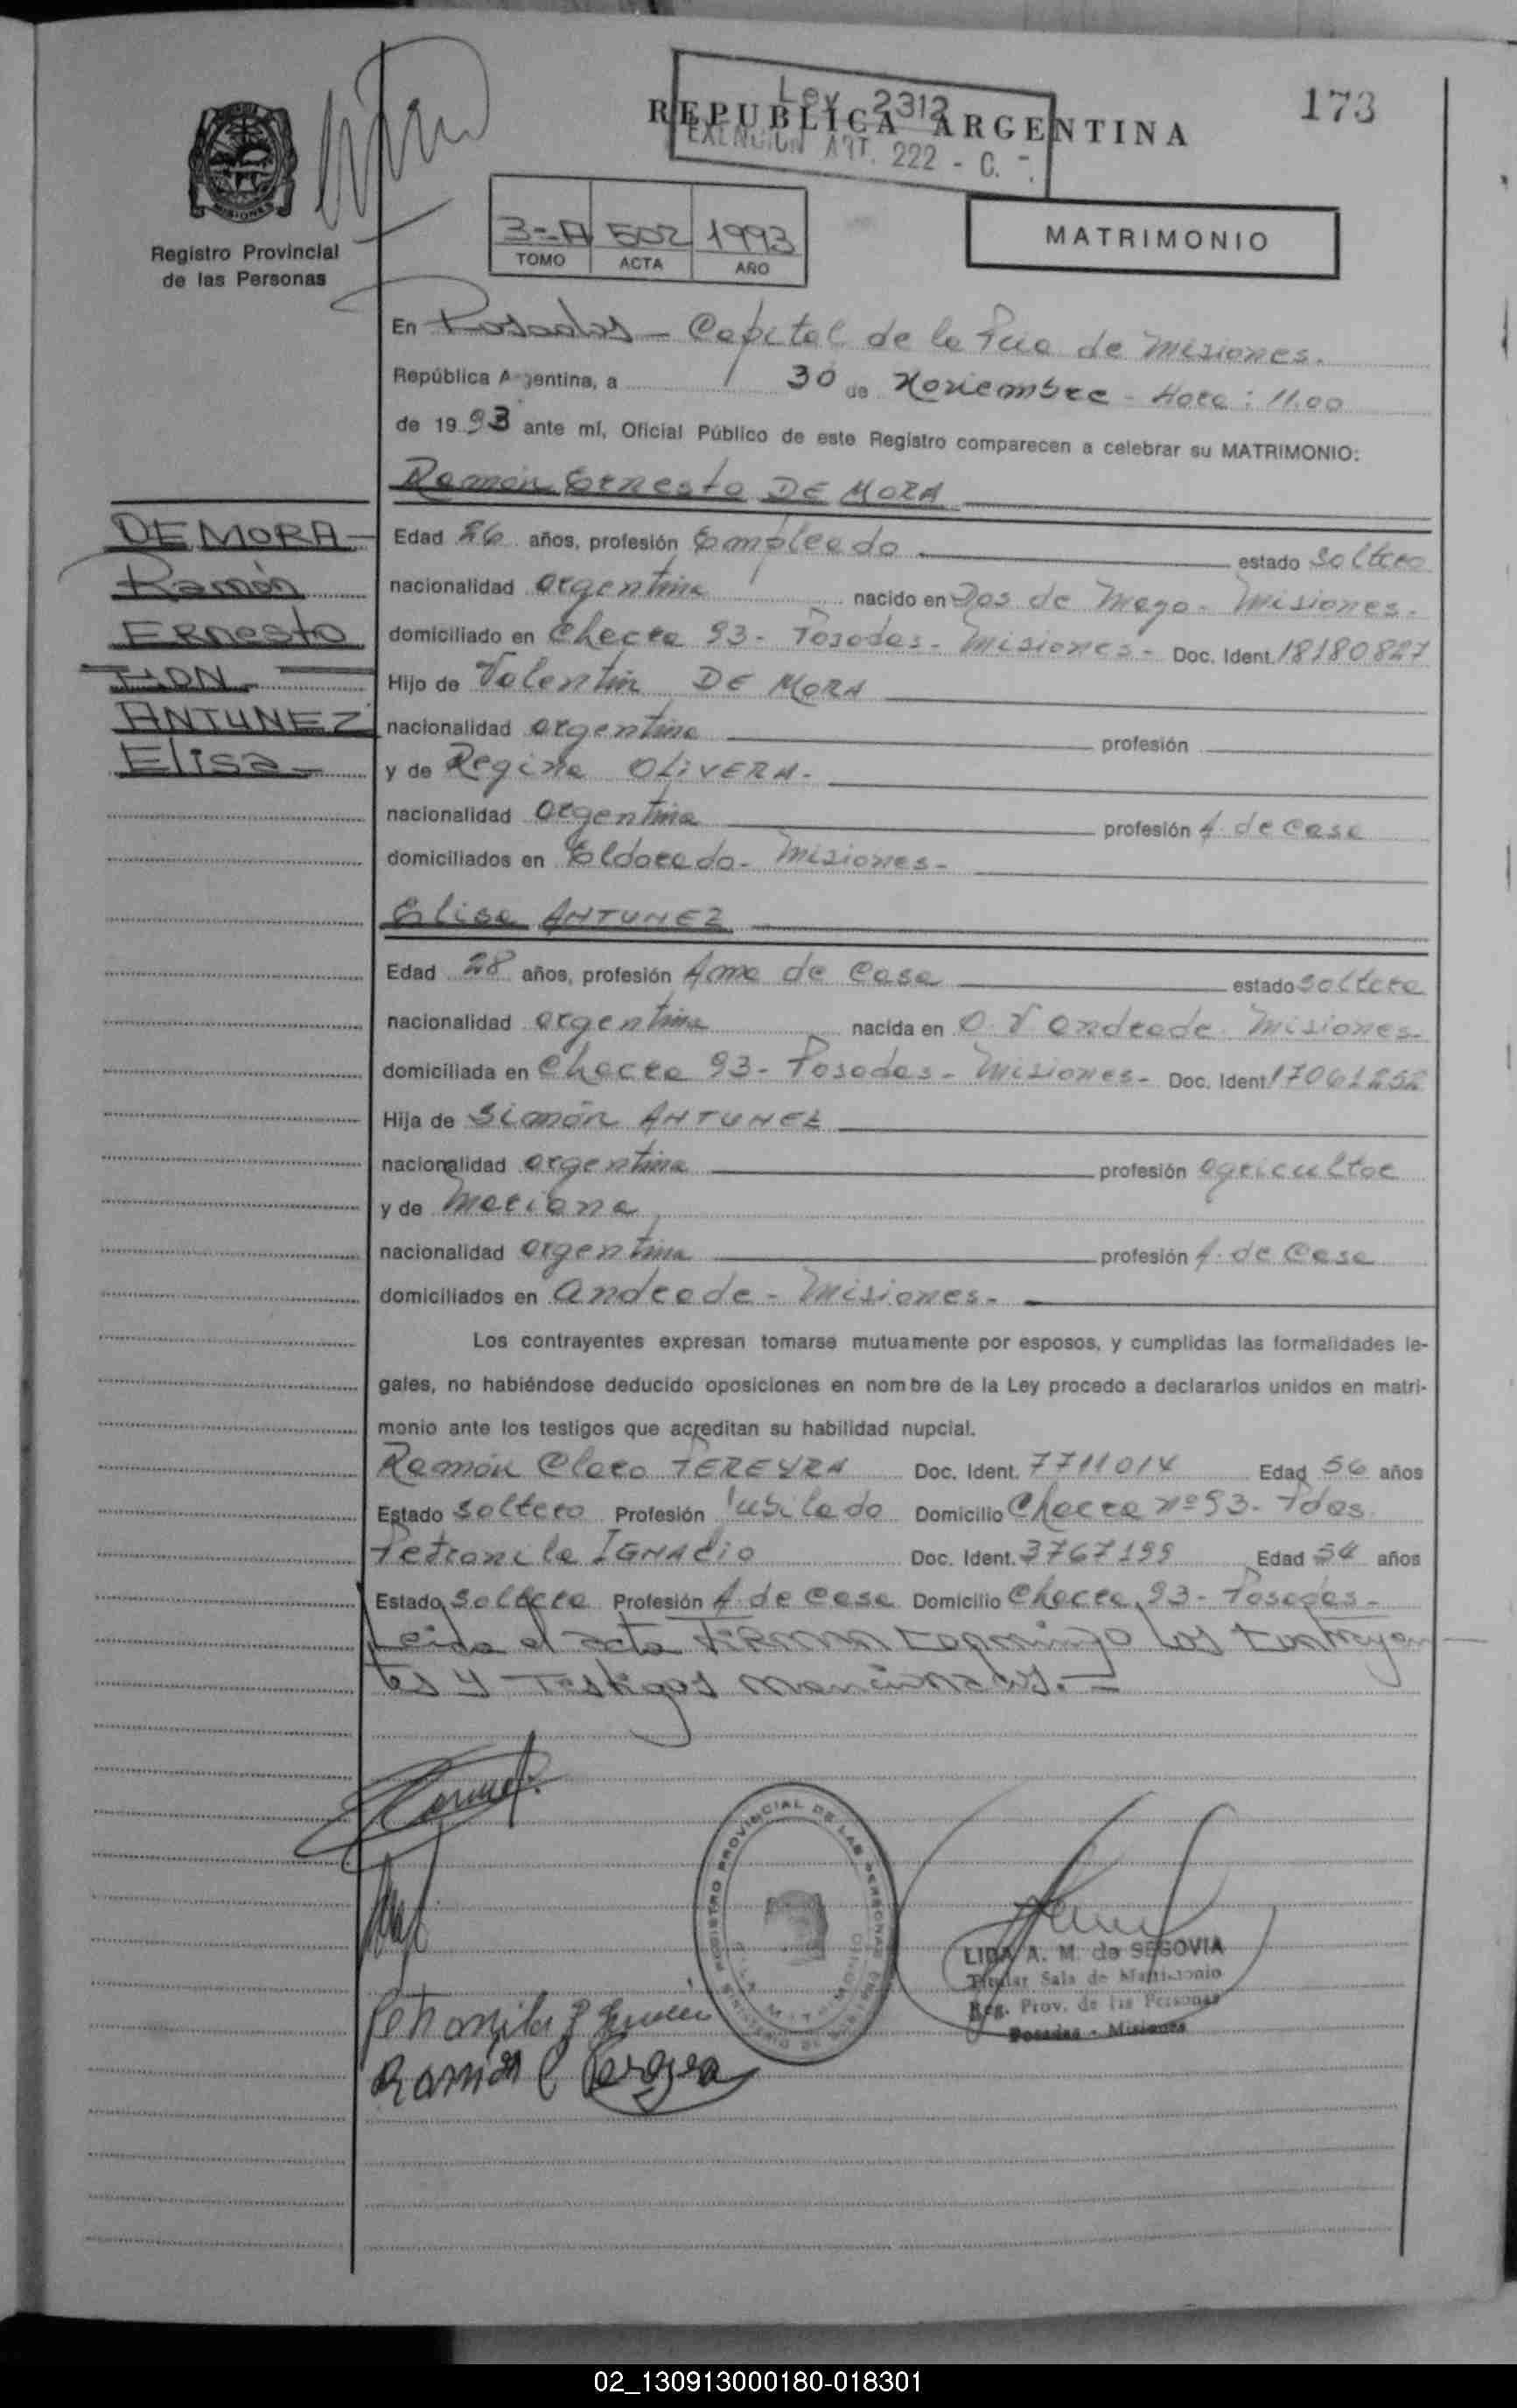 173
Ley 2312
REPUBLICA ARGENTINA
EXENCION ART. 222 - C.
3-A 502 1993
TOMO ACTA AÑO
MATRIMONIO
MISIONES
Registro Provincial
de las Personas
En Posadas - Capital de la Pcia de Misiones.
República Argentina, a 30 de Noviembre - Hora: 11.00
de 1993 ante mí, Oficial Público de este Registro comparecen a celebrar su MATRIMONIO:
Ramón Ernesto DE MORA
DE MORA
Ramón
Ernesto
CON
ANTUNEZ
Elisa
Edad 26 años, profesión Empleado estado soltero
nacionalidad argentina nacido en Dos de Mayo - Misiones -
domiciliado en Chacra 93 - Posadas - Misiones - Doc. Ident. 18180827
Hijo de Valentín DE MORA
nacionalidad argentina profesión
y de Regina OLIVERA -
nacionalidad argentina profesión A. de Casa
domiciliados en Eldorado - Misiones -
Elisa ANTUNEZ
Edad 28 años, profesión Ama de Casa estado soltera
nacionalidad argentina nacida en O. V Andrade Misiones -
domiciliada en Chacra 93 - Posadas - Misiones - Doc. Ident. 17061252
Hija de Simón ANTUNEZ
nacionalidad argentina profesión agricultor
y de Mariana
nacionalidad argentina profesión A. de Casa
domiciliados en Andrade - Misiones -
Los contrayentes expresan tomarse mutuamente por esposos, y cumplidas las formalidades le-
gales, no habiéndose deducido oposiciones en nombre de la Ley procedo a declararlos unidos en matri-
monio ante los testigos que acreditan su habilidad nupcial.
Ramón Claro PEREYRA Doc. Ident. 7711014 Edad 56 años
Estado soltero Profesión Jubilado Domicilio Chacra Nº 93 - Pdas.
Petronila IGNACIO Doc. Ident. 3767199 Edad 54 años
Estado soltera Profesión A. de Casa Domicilio Chacra 93 - Posadas -
Leida el acta firman conmigo los contrayen
tes y Testigos mencionados. -
REGISTRO PROVINCIAL DE LAS PERSONAS
LIDA A. M. de SEGOVIA
Titular Sala de Matrimonio
Reg. Prov. de las Personas
Posadas - Misiones
Ramón C Pereyra
02_130913000180-018301